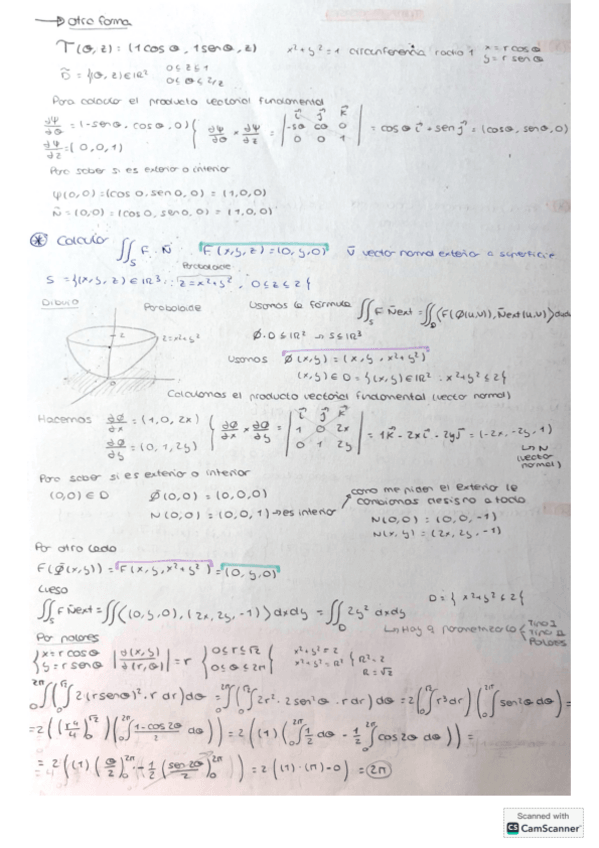 → otra forma
T(θ, z) = (1cosθ, 1senθ, z) x²+y²=1 circunferencia radio 1 x=rcosθ
y=r senθ
D̃ = {(θ, z)∈ℝ² 0≤z≤1
0≤θ≤
Para calcular el producto vectorial fundamental
∂Ψ/∂θ = (-senθ, cosθ, 0) { ∂Ψ/∂θ × ∂Ψ/∂z = | i j k | -sθ cθ 0 | 0 0 1 | = cosθ i + senj = (cosθ, senθ, 0)
∂Ψ/∂z = (0, 0, 1)
Para saber si es exterior o interior
φ(0,0) = (cos 0, sen 0, 0) = (1,0,0)
N̄ = (0,0) = (cos 0, sen 0, 0) = (1,0,0)
* Calcular ∬_S F·N̄ F(x,y,z) = (0,y,0) ν̄ vector normal exterior a superficie
Paraboloide
S = {(x,y,z)∈ℝ³: z=x²+y², 0≤z≤2}
Dibujo Paraboloide Usamos la fórmula ∬_S F N̄ext = ∬_D ⟨F(φ(u,v)), N̄ext(u,v)⟩ dudv
2 z=x²+y² φ: D≤ℝ² → S≤ℝ³
Usamos φ(x,y) = (x, y, x²+y²)
(x,y)∈D = {(x,y)∈ℝ²: x²+y²≤2}
Calculamos el producto vectorial fundamental (vector normal)
Hacemos ∂φ/∂x = (1, 0, 2x) { ∂φ/∂x × ∂φ/∂y = | i j k | 1 0 2x | 0 1 2y | = 1k - 2xi - 2yj = (-2x, -2y, 1)
∂φ/∂y = (0, 1, 2y) ↳ N (vector normal)
Para saber si es exterior o interior
(0,0)∈D φ(0,0) = (0,0,0) como me piden el exterior le
cambiamos de signo a todo
N(0,0) = (0,0,1) → es interior N(0,0) = (0,0,-1)
N(x,y) = (2x, 2y, -1)
Por otro lado
F(φ(x,y)) = F(x, y, x²+y²) = (0, y, 0)
Luego D = { x²+y²≤2}
∬_S F N̄ext = ∬⟨(0,y,0), (2x, 2y, -1)⟩ dxdy = ∬_D 2y² dxdy
↳ Hay q parametrizarlo { Tipo I
Tipo II
Polares
Por polares
{ x=r cosθ y=r senθ |∂(x,y)/∂(r,θ)| = r { 0≤r≤√2 0≤θ≤2π x²+y²=2 x²+y²=R² } R²=2 R=√2
∫₀^2π(∫₀^√2 2(rsenθ)²·r dr)dθ = ∫₀^2π(∫₀^√2 2r²·2sen²θ·r dr)dθ = 2(∫₀^√2 r³dr)(∫₀^2π sen²θ dθ) =
= 2((r⁴/4)₀^√2 (∫₀^2π (1-cos2θ)/2 dθ)) = 2((1)(∫₀^2π 1/2 dθ - 1/2 ∫₀^2π cos2θ dθ)) =
= 2((1)(θ/2)₀^2π - 1/2(sen2θ/2)₀^2π) = 2((1)·(π)-0) = 2π
Scanned with
CS CamScanner